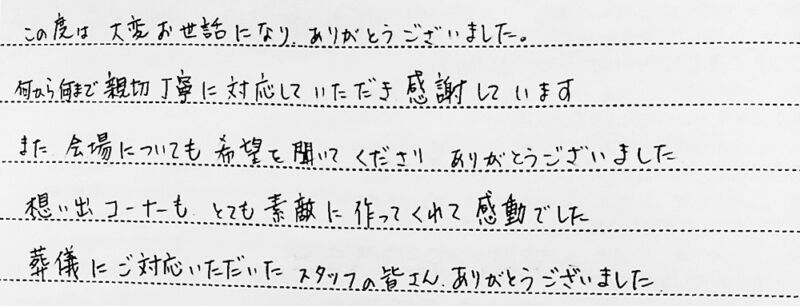 この度は 大変お世話になり ありがとうございました。
何から何まで 親切丁寧に対応していただき 感謝しています
また 会場についても 希望を聞いてくださり ありがとうございました
想い出コーナーも、とても素敵に作ってくれて感動でした
葬儀にご対応いただいた スタッフの皆さん、ありがとうございました